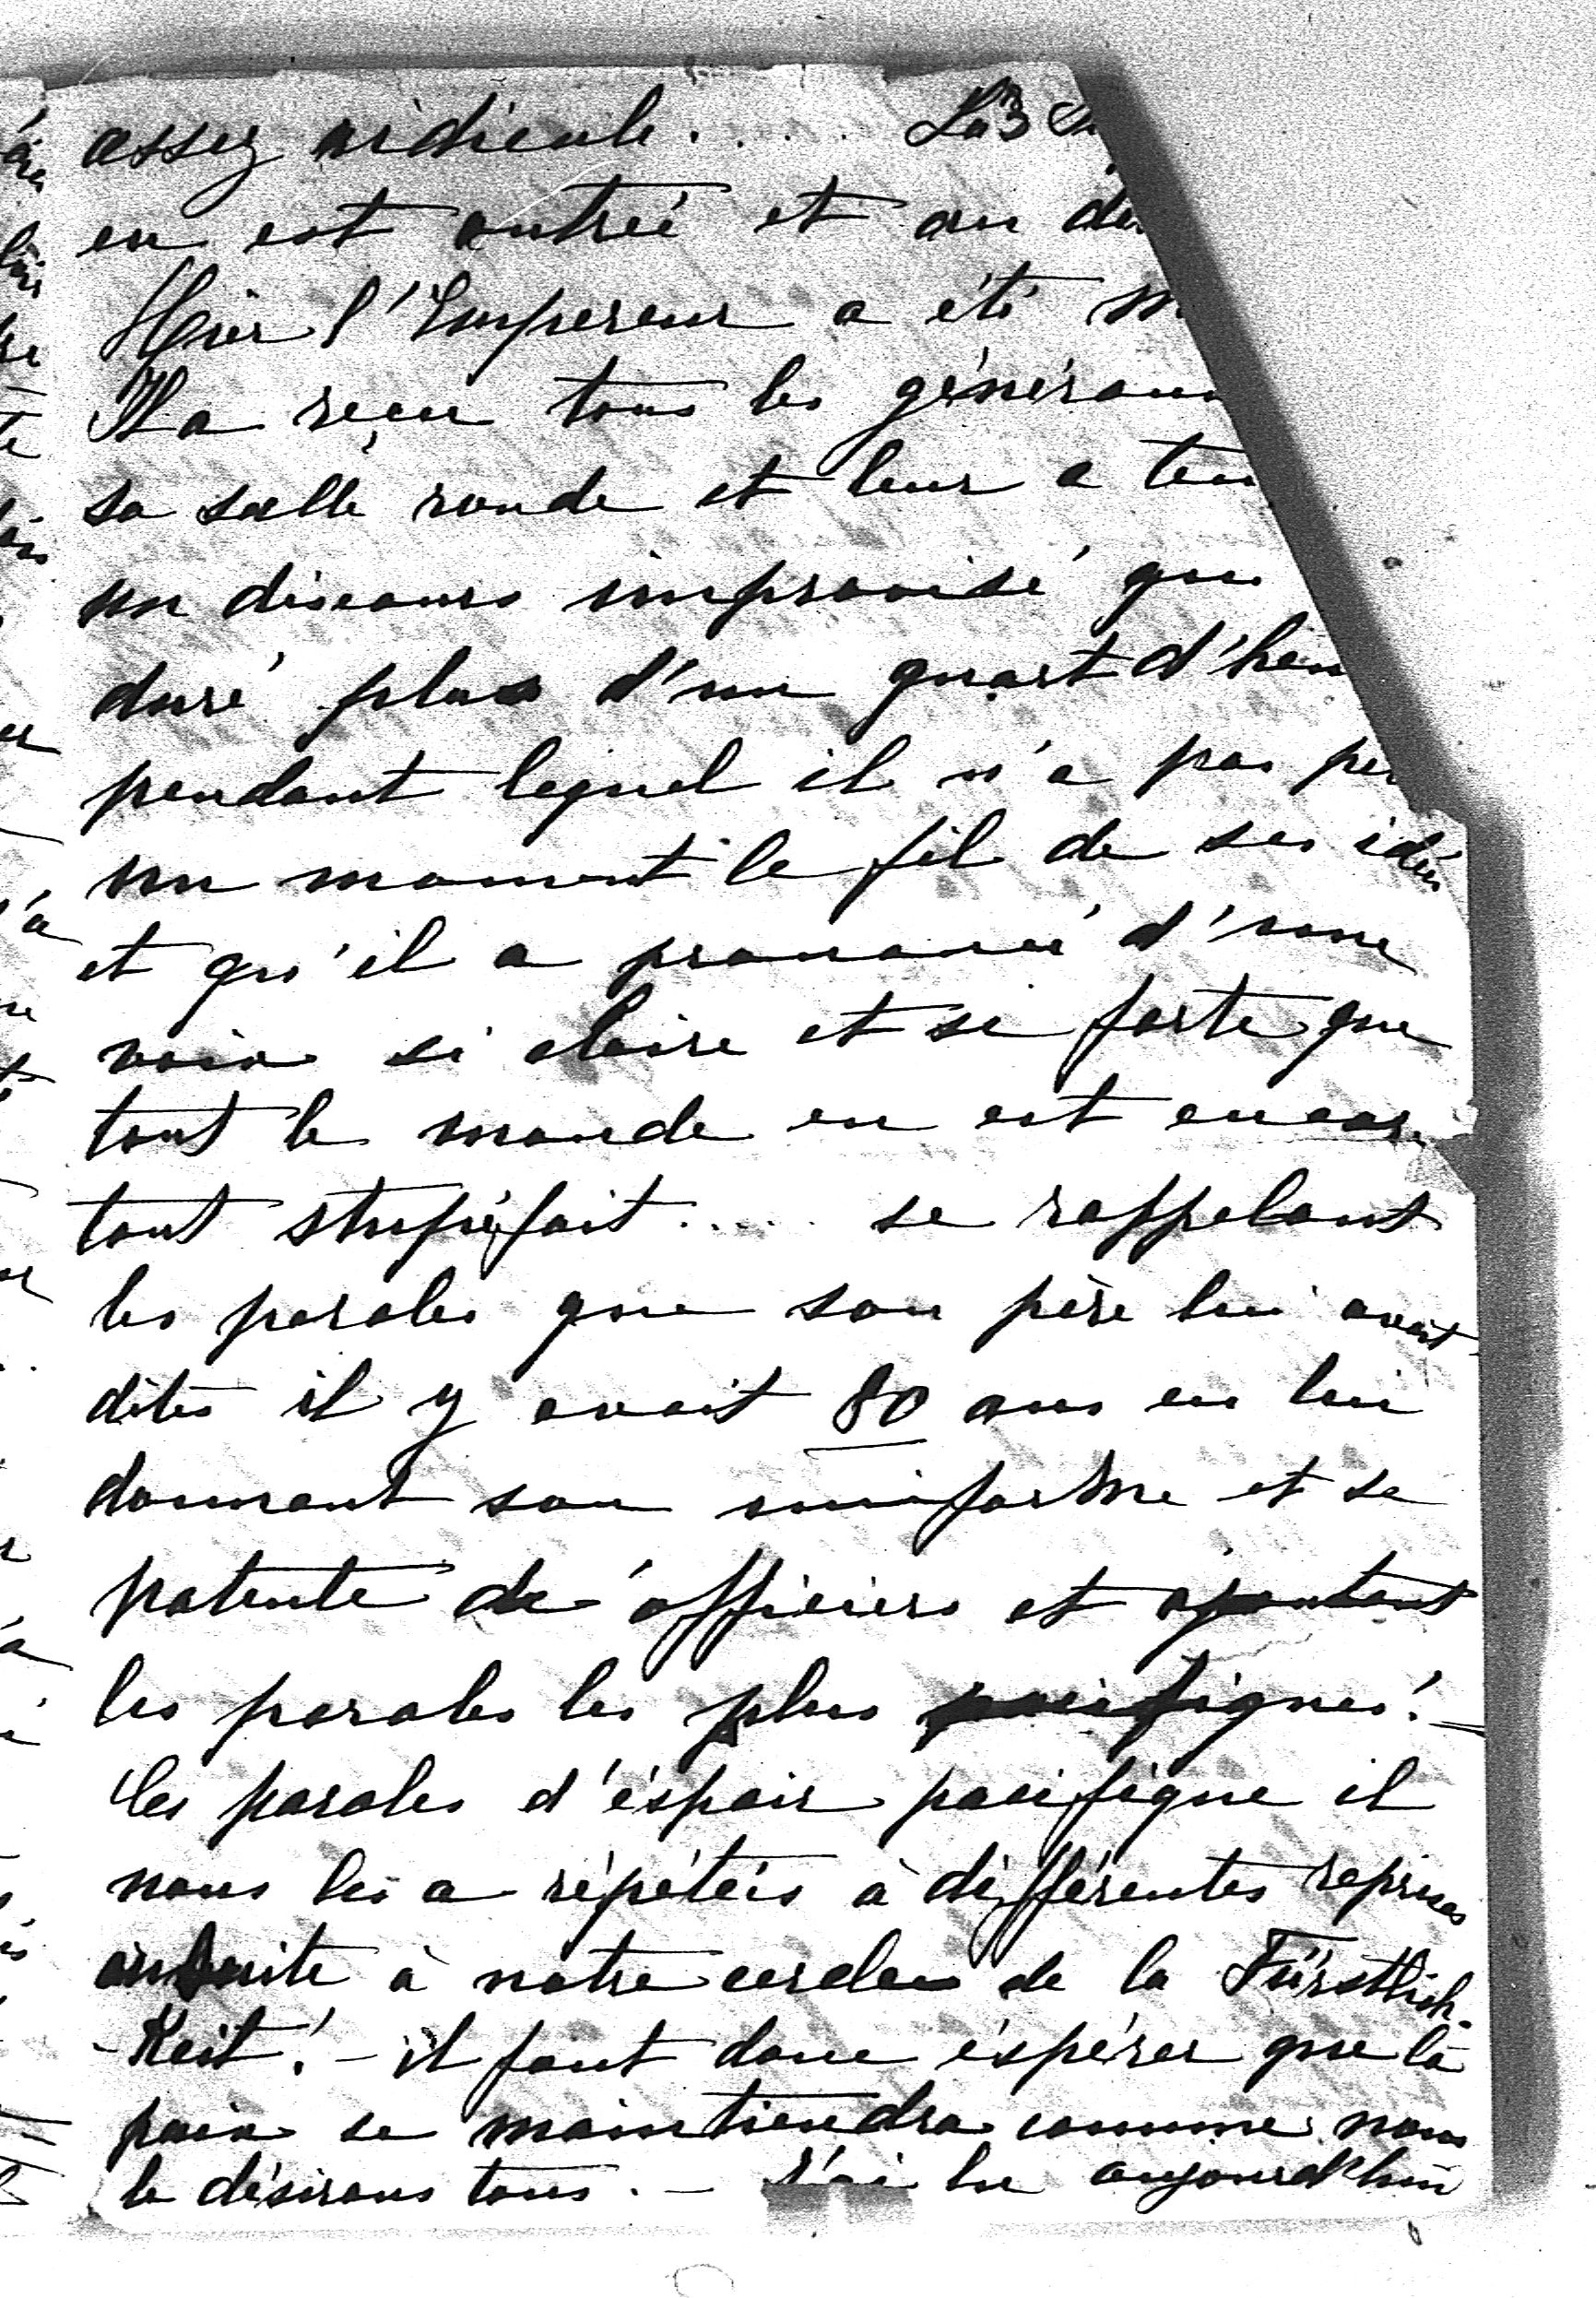 assez ridicule..... La
en est outrée et au
Hier l'Empereur a été
Il a reçu tous les généraux
sa salle ronde et leur a
un discours improvisé
duré plus d'un quart d'heu
pendant lequel il n'a pas per
un moment le fil de ses idées
et qu'il a prononcé d'une
voix si claire et si forte que
tout le monde en est encore
tout stupéfait..... se rappelant
les paroles que son père lui avait
dites il y avait 80 ans en lui
donnant son uniforme et sa
patente de officiers et ajoutant
les paroles les plus pacifiques!
les paroles d'éspoir pacifique il
nous les a répétées à différentes reprises
ensuite à notre cercle de la Fürstlich-
-Keit! - il faut donc éspérer que la
paix se maintiendra comme nous
le désirons tous. - J'ai lu aujourd'hui